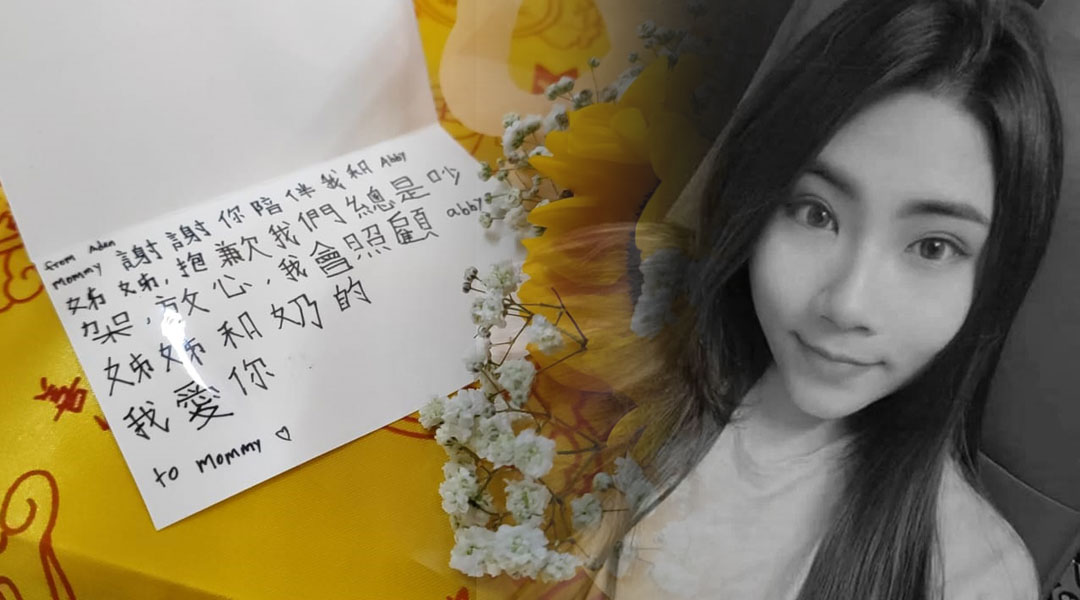 from Aden
Mommy 謝謝你陪伴我和 Abby
姊姊,抱歉我們總是吵
架,放心,我會照顧 abby
姊姊和奶的
我愛你
to mommy ♡